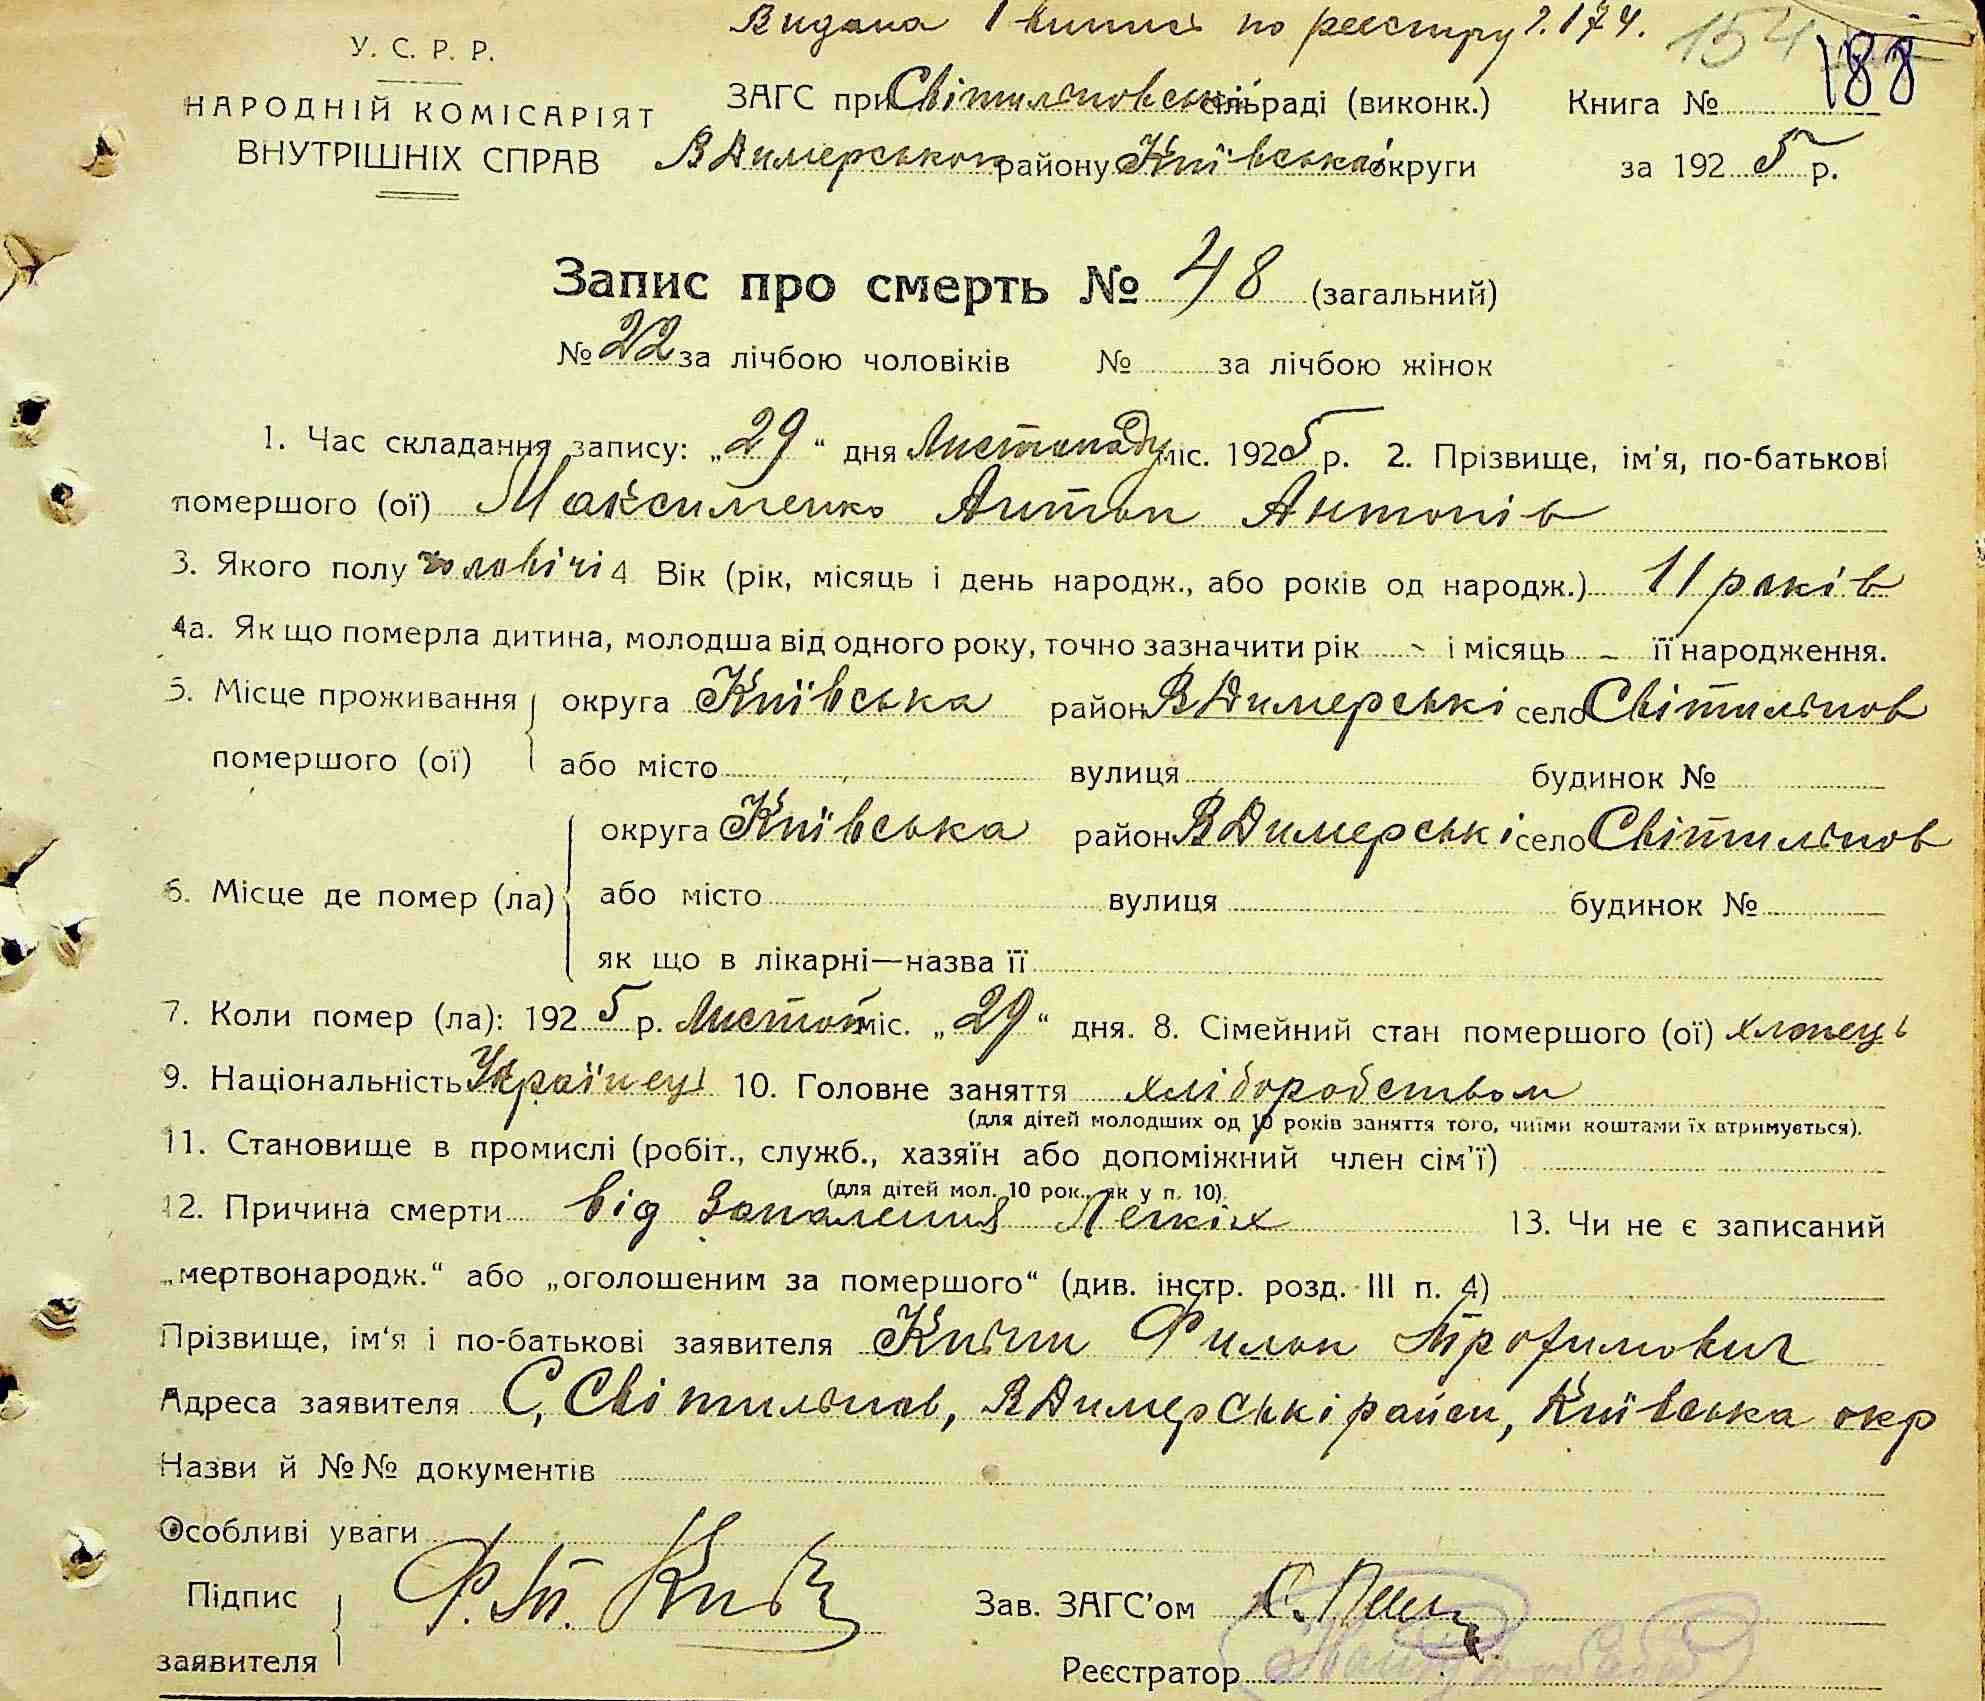 Видана 1 випись по реєстру г. 174. 154 188
У. С. Р. Р.
НАРОДНІЙ КОМІСАРІЯТ
ВНУТРІШНІХ СПРАВ
ЗАГС при Світильновській сільраді (виконк.) Книга №
В Димерського району Київської округи за 1925 р.
Запис про смерть № 48 (загальний)
№ 22 за лічбою чоловіків № за лічбою жінок
1. Час складання запису: „29“ дня Листопаду міс. 1925 р. 2. Прізвище, ім'я, по-батькові
помершого (ої) Максименко Антон Антонів
3. Якого полу чоловічі 4 Вік (рік, місяць і день народж., або років од народж.) 11 років
4а. Як що померла дитина, молодша від одного року, точно зазначити рік - і місяць - її народження.
5. Місце проживання округа Київська район В Димерські село Світильнов
помершого (ої) або місто вулиця будинок №
округа Київська район В Димерські село Світильнов
6. Місце де помер (ла) або місто вулиця будинок №
як що в лікарні—назва її
7. Коли помер (ла): 1925 р. Листоп міс. „29“ дня. 8. Сімейний стан помершого (ої) хлопець
9. Національність Українець 10. Головне заняття хліборобством
(для дітей молодших од 10 років заняття того, чиїми коштами їх втримується).
11. Становище в промислі (робіт., служб., хазяїн або допоміжний член сім'ї)
(для дітей мол. 10 рок., як у п. 10).
12. Причина смерти від Запалення Легкіх 13. Чи не є записаний
„мертвонародж.“ або „оголошеним за помершого“ (див. інстр. розд. III п. 4)
Прізвище, ім'я і по-батькові заявителя Филон Трофимович
Адреса заявителя С, Світильнов, В Димерські район, Київська окр
Назви й №№ документів
Особливі уваги
Підпис
заявителя Ф. Т.
Зав. ЗАГС'ом
Реєстратор